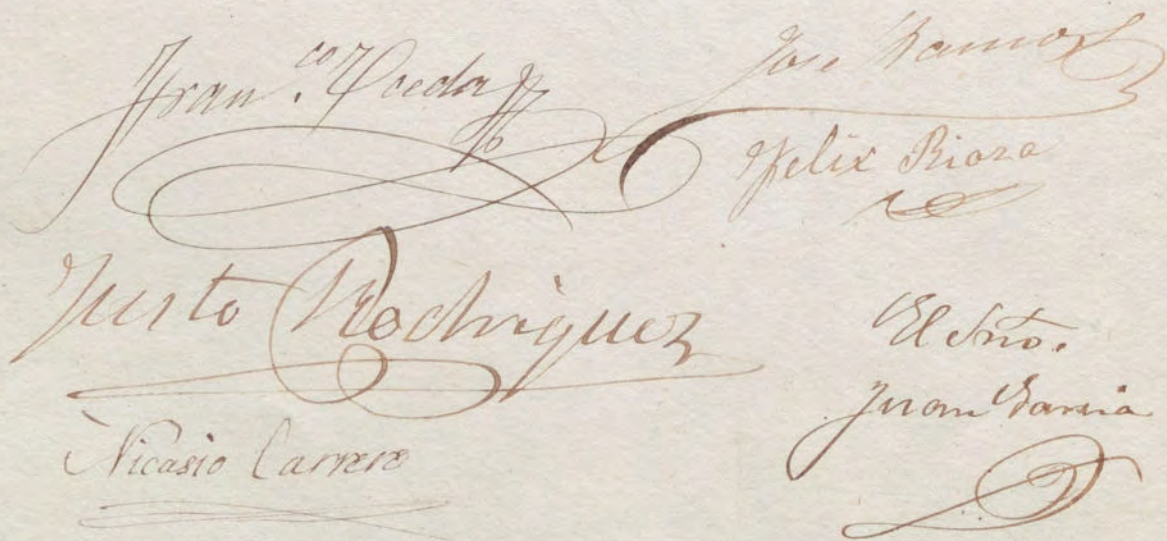 Fran.co Poeda
Jose Ramos
Felix Rioza
Justo Rodriguez
El Srio.
Juan Garcia
Nicasio Carrero